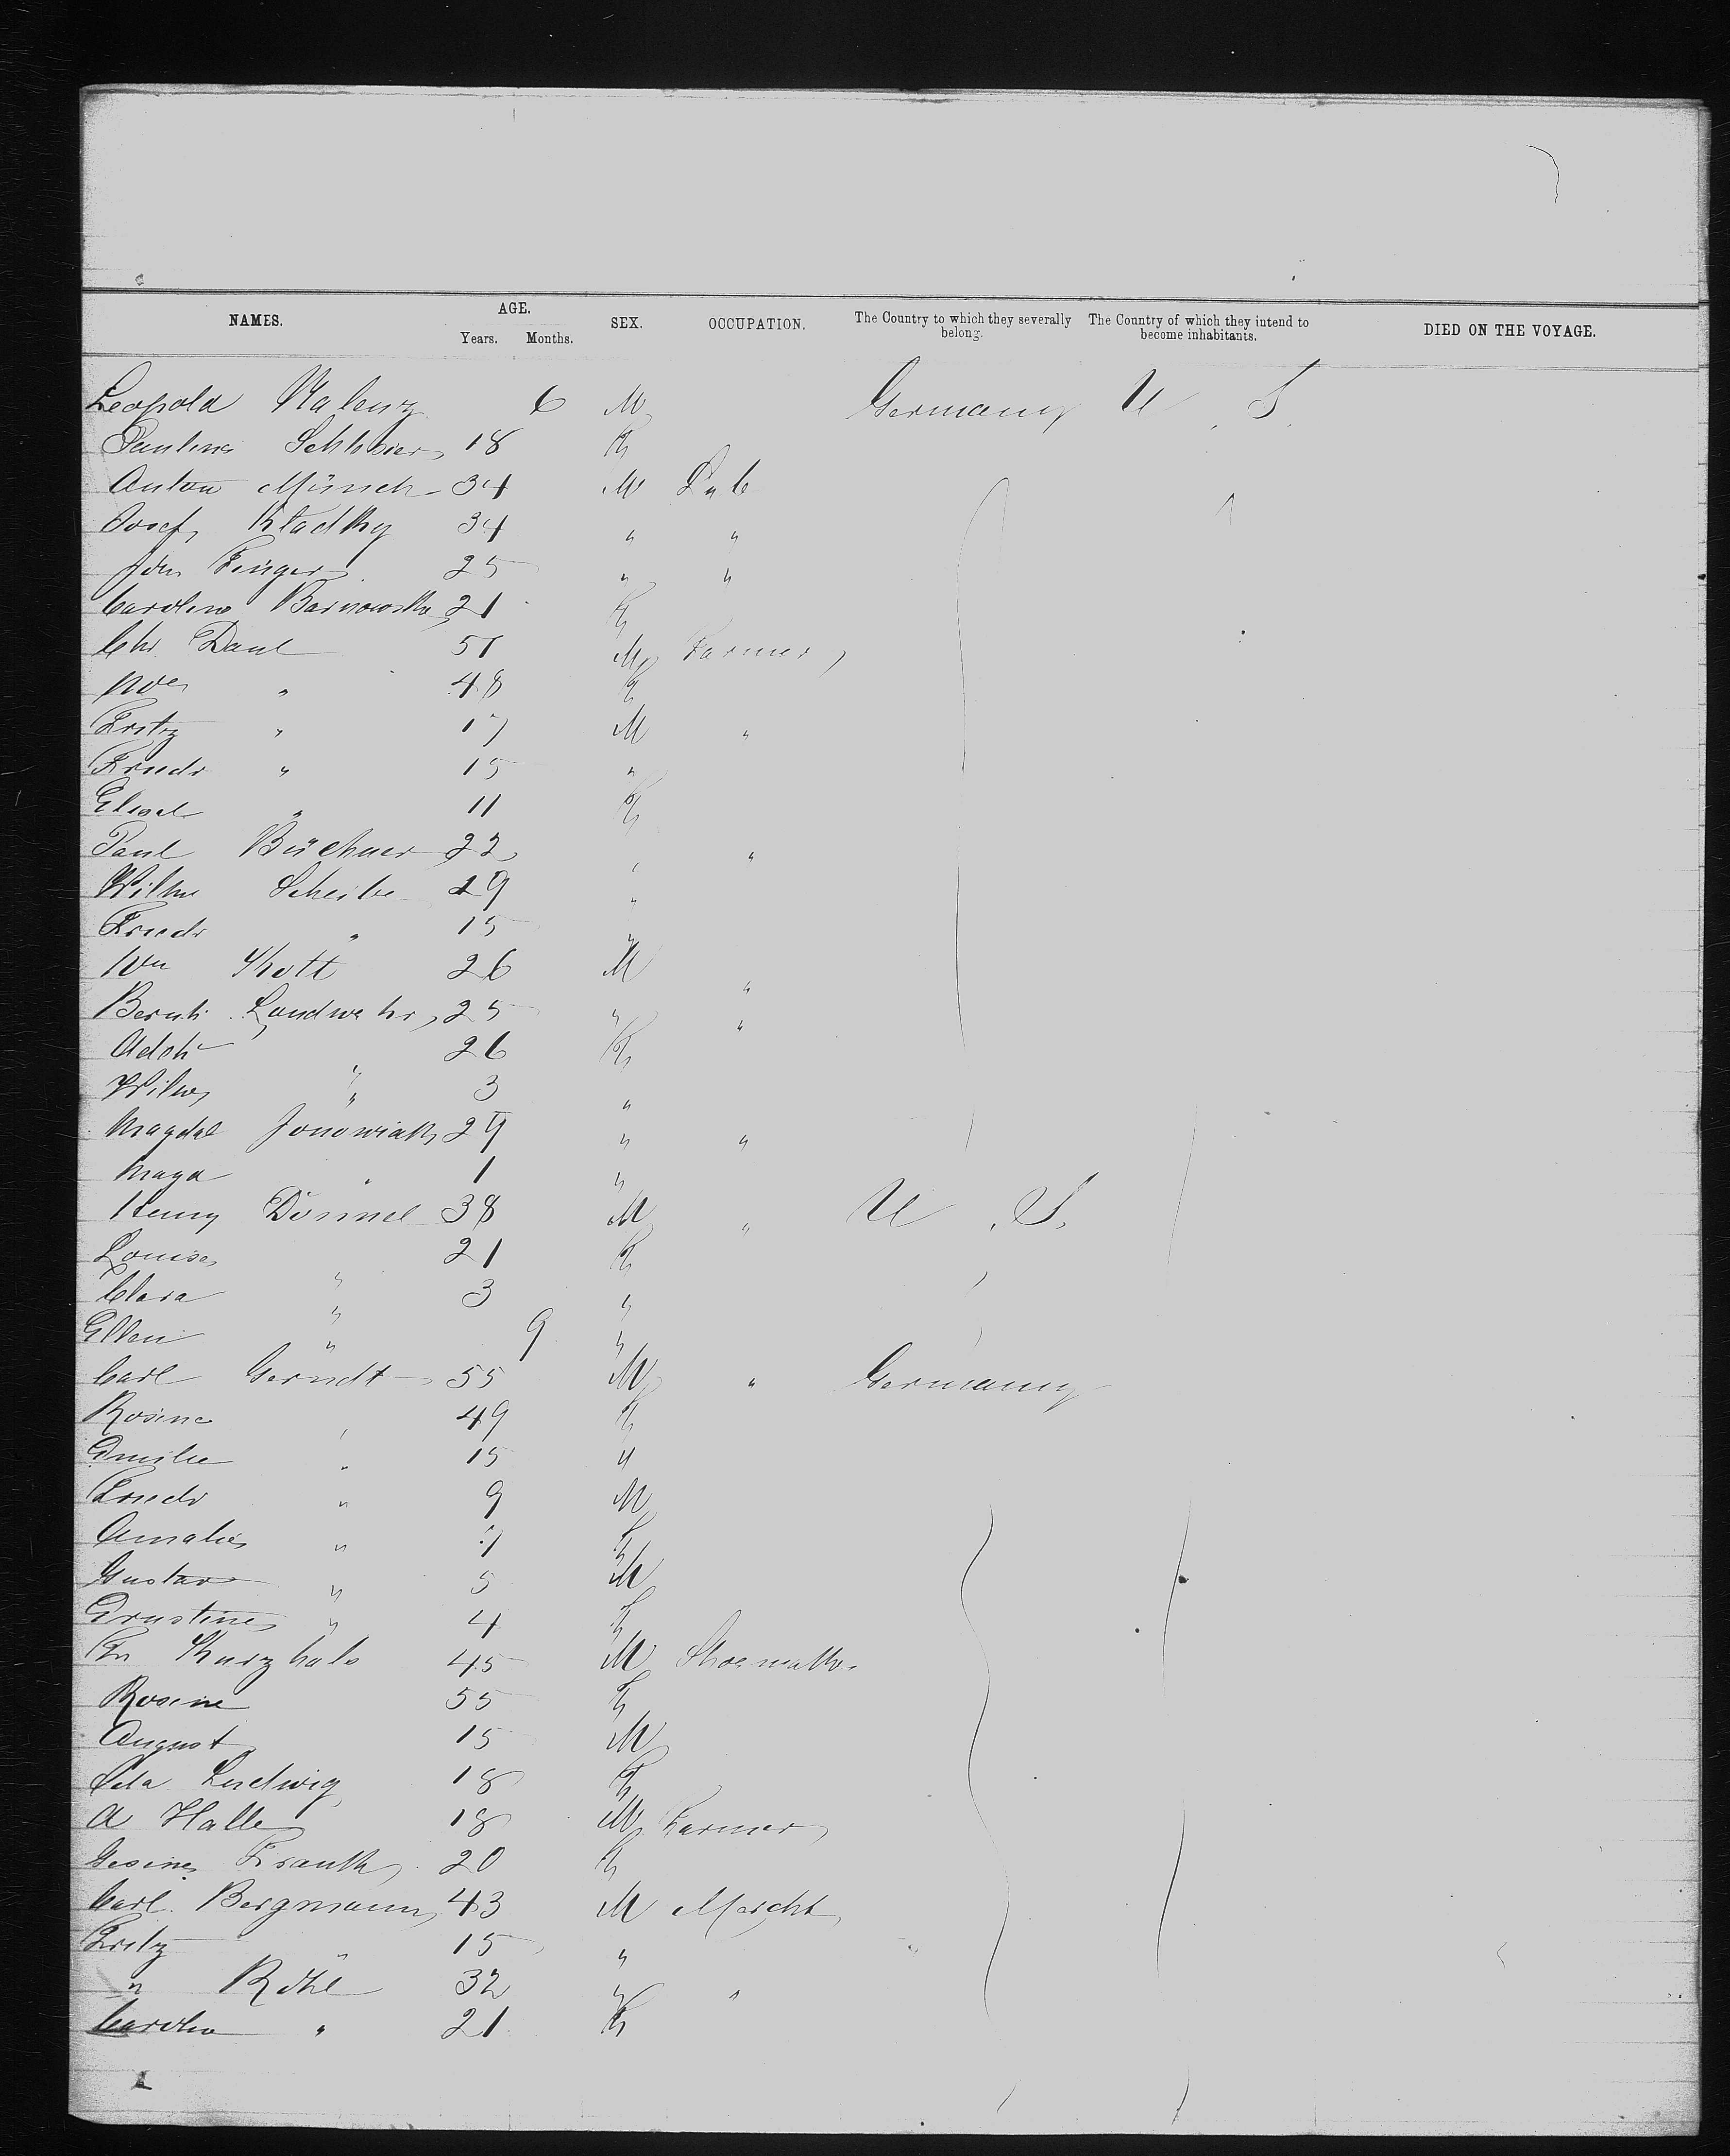 NAMES. AGE. Years. Months. SEX. OCCUPATION. The Country to which they severally belong. The Country of which they intend to become inhabitants. DIED ON THE VOYAGE.
Leopold 6 M Germany U. S.
18 F
Anton Münch 34 M Lab
Josef Kladky 34 " "
Finger 25 " "
Caroline Barnowska 21 F
Chr Daul 51 M Farmer
" 48 F
Fritz " 17 M "
Friedr " 15 "
" 11 F
Paul Büchner 22 "
Wilhe Scheibe 29 "
Friedr " 15 "
Wm Kott 26 M "
Bernh Landwehr 25 " "
Adoh 26 F
Wilh " 3 "
Magdal Jonowiak 29 " "
Magd " 1 "
Henry Dömmel 38 M " U. S.
Louise " 21 F
Clara " 3 "
Ellen " 9 "
Carl Gerndt 55 M " Germany
Rosine " 49 F
Emilie " 15 "
Friedr " 9 M
Amalie " 7 F
Gustav " 5 M
Ernstine " 4 F
Fr Kurzhals 45 M Shoemak
Rosine 55 F
August 15 M
Ida Ludwig 18 F
A Halle 18 M Farmer
Gesine Frank 20 F
Carl Bergmann 43 M Mercht
Fritz " 15 "
" Röhl 32 " "
Carolin " 21 F